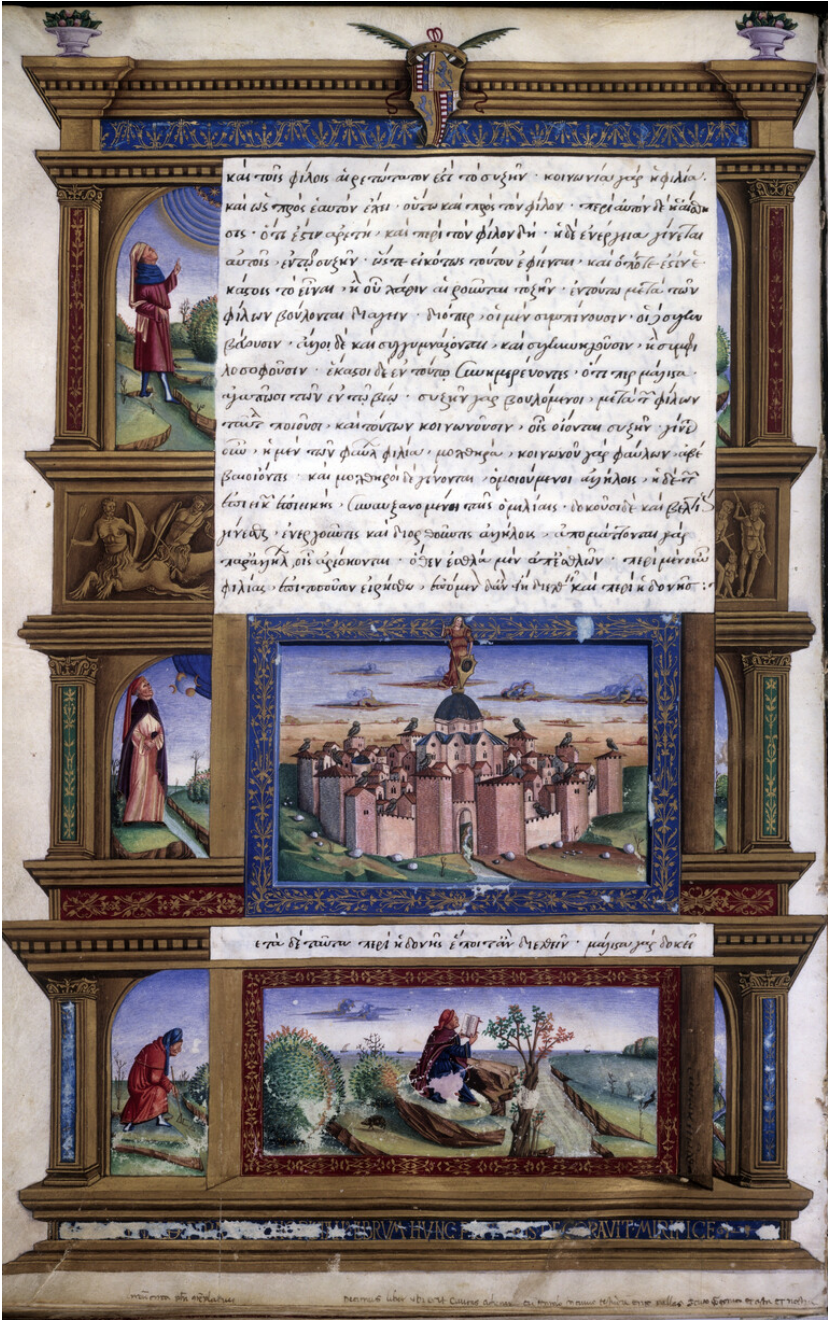 καὶ τοῖς φίλοις αἱρετώτατον ἐστὶ τὸ συζῆν · κοινωνία γὰρ ἡ φιλία ·
καὶ ὡς πρὸς ἑαυτὸν ἔχει · οὕτω καὶ πρὸς τὸν φίλον · περὶ αὐτὸν δὲ ἡ αἴσθη
σις · ὅτι ἔστιν αἱρετή · καὶ περὶ τὸν φίλον δὴ · ἡ δὲ ἐνέργεια γίνεται
αυτοῖς · ἐν τῷ συζῆν · ὥστε εἰκότως τούτου ἐφίενται · καὶ ὅποτε ἐστὶν ἑ
κάστοις τὸ εἶναι · ἢ οὗ χάριν αἱροῦνται τὸ ζῆν · ἐν τούτω μετὰ τῶν
φίλων βούλονται διάγειν · διόπερ · οἱ μὲν συμπίνουσιν · οἱ δὲ συγκυ
βεύουσιν · ἄλλοι δὲ καὶ συγγυμνάζονται · καὶ συγκυνηγοῦσιν · ἢ συμφι
λοσοφοῦσιν · ἕκαστοι δὲ ἐν τούτῳ συνημερεύοντες · ὅτι περ μάλιστα ·
ἀγαπῶσι τῶν ἐν τῷ βίῳ · συζῆν γὰρ βουλόμενοι · μετὰ τῶν φίλων
ταῦτα ποιοῦσι · καὶ τούτων κοινωνοῦσιν · οἷς οἴονται συζῆν · γίνεται
οὖν · ἡ μὲν τῶν φαύλων φιλία · μοχθηρά · κοινωνοῦσι γὰρ φαύλων · ἀβέ
βαιοι ὄντες · καὶ μοχθηροὶ δὲ γίνονται · ὁμοιούμενοι ἀλλήλοις · ἡ δὲ τῶν
ἐπιεικῶν ἐπιεικής · συναυξανομένη ταῖς ὁμιλίαις · δοκοῦσι δὲ καὶ βελτίους
γίνεσθαι · ἐνεργοῦντες καὶ διορθοῦντες ἀλλήλους · ἀπομάττονται γὰρ
παρ' ἀλλήλων οἷς ἀρέσκονται · ὅθεν ἐσθλὰ μὲν ἀπ' ἐσθλῶν · περὶ μὲν οὖν
φιλίας · ἐπὶ τοσοῦτον εἰρήσθω · ἑπόμενον δ' ἂν εἴη διελθεῖν καὶ περὶ ἡδονῆς :
ετὰ δὲ ταῦτα περὶ ἡδονῆς ἕποιτ' ἂν διελθεῖν · μάλιστα γὰρ δοκεῖ
LIBRUM HUNC MIRIFICE